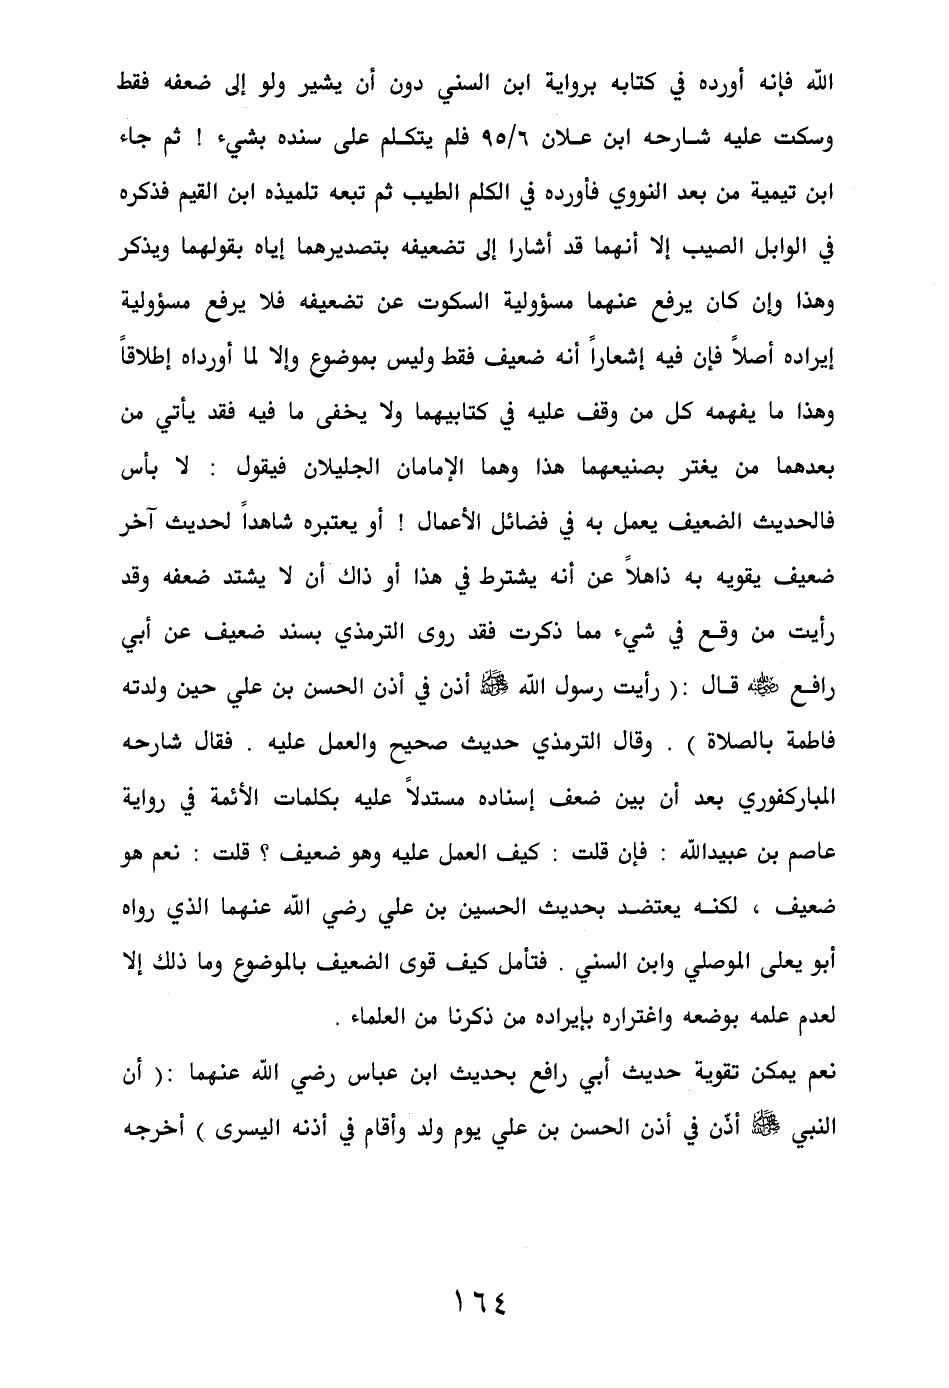 الله فإنه أورده في كتابه برواية ابن السني دون أن يشير ولو إلى ضعفه فقط
وسكت عليه شارحه ابن علان ٩٥/٦ فلم يتكلم على سنده بشيء ! ثم جاء
ابن تيمية من بعد النووي فأورده في الكلم الطيب ثم تبعه تلميذه ابن القيم فذكره
في الوابل الصيب إلا أنهما قد أشارا إلى تضعيفه بتصديرهما إياه بقولهما ويذكر
وهذا وإن كان يرفع عنهما مسؤولية السكوت عن تضعيفه فلا يرفع مسؤولية
إيراده أصلاً فإن فيه إشعاراً أنه ضعيف فقط وليس بموضوع وإلا لما أورداه إطلاقاً
وهذا ما يفهمه كل من وقف عليه في كتابيهما ولا يخفى ما فيه فقد يأتي من
بعدهما من يغتر بصنيعهما هذا وهما الإمامان الجليلان فيقول : لا بأس
فالحديث الضعيف يعمل به في فضائل الأعمال ! أو يعتبره شاهداً لحديث آخر
ضعيف يقويه به ذاهلاً عن أنه يشترط في هذا أو ذاك أن لا يشتد ضعفه وقد
رأيت من وقع في شيء مما ذكرت فقد روى الترمذي بسند ضعيف عن أبي
رافع رضي الله عنه قال :( رأيت رسول الله ﷺ أذن في أذن الحسن بن علي حين ولدته
فاطمة بالصلاة ) . وقال الترمذي حديث صحيح والعمل عليه . فقال شارحه
المباركفوري بعد أن بين ضعف إسناده مستدلاً عليه بكلمات الأئمة في رواية
عاصم بن عبيدالله : فإن قلت : كيف العمل عليه وهو ضعيف ؟ قلت : نعم هو
ضعيف ، لكنه يعتضد بحديث الحسين بن علي رضي الله عنهما الذي رواه
أبو يعلى الموصلي وابن السني . فتأمل كيف قوى الضعيف بالموضوع وما ذلك إلا
لعدم علمه بوضعه واغتراره بإيراده من ذكرنا من العلماء .
نعم يمكن تقوية حديث أبي رافع بحديث ابن عباس رضي الله عنهما :( أن
النبي ﷺ أذّن في أذن الحسن بن علي يوم ولد وأقام في أذنه اليسرى ) أخرجه
١٦٤